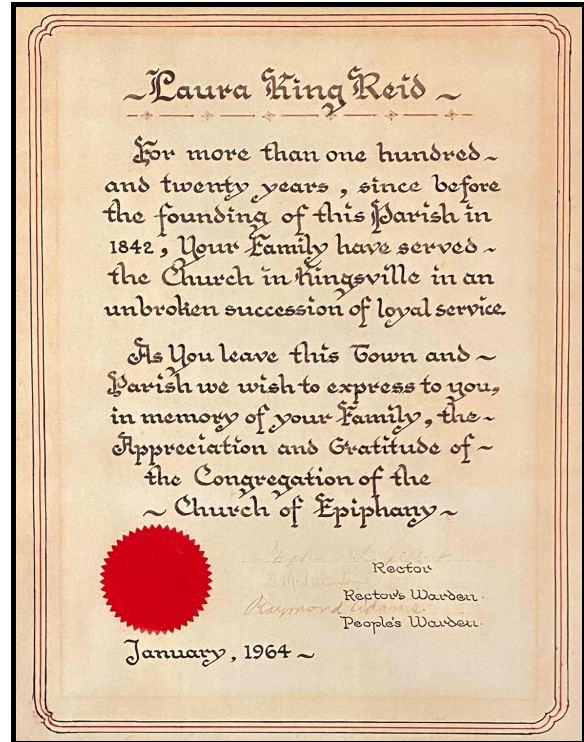 ~ Laura King Reid ~
For more than one hundred ~
and twenty years, since before
the founding of this Parish in
1842, Your Family have served ~
the Church in Kingsville in an
unbroken succession of loyal service.
As You leave this Town and ~
Parish we wish to express to you,
in memory of your Family, the ~
Appreciation and Gratitude of ~
the Congregation of the
~ Church of Epiphany ~
Rector
Rector's Warden.
Raymond Adams.
People's Warden.
January, 1964 ~